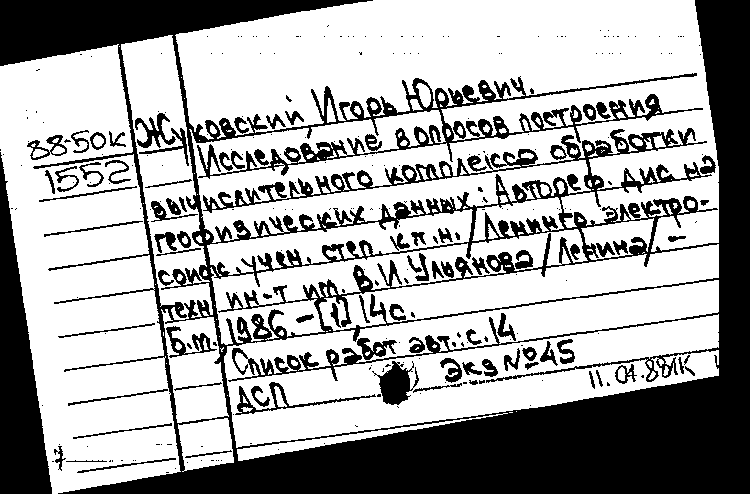 88-50к
1552
Жуковский, Игорь Юрьевич.
Исследование вопросов построения
вычислительного комплекса обработки
геофизических данных.: Автореф. дис на
соиск. учен. степ. к.т.н. / Ленингр. электро-
техн. ин-т им. В.И. Ульянова /Ленина/. -
Б.м., 1986. - [1] 14с.
Список работ авт.: с. 14
ДСП Экз №45
7